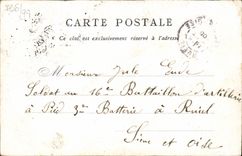 CARTE POSTALE
Ce côté est exclusivement réservé à l'adresse
Monsieur Jule
Soldat au 16e Battaillon d'artillerie
à Pied 3me Batterie à Rueil
Seine et oise